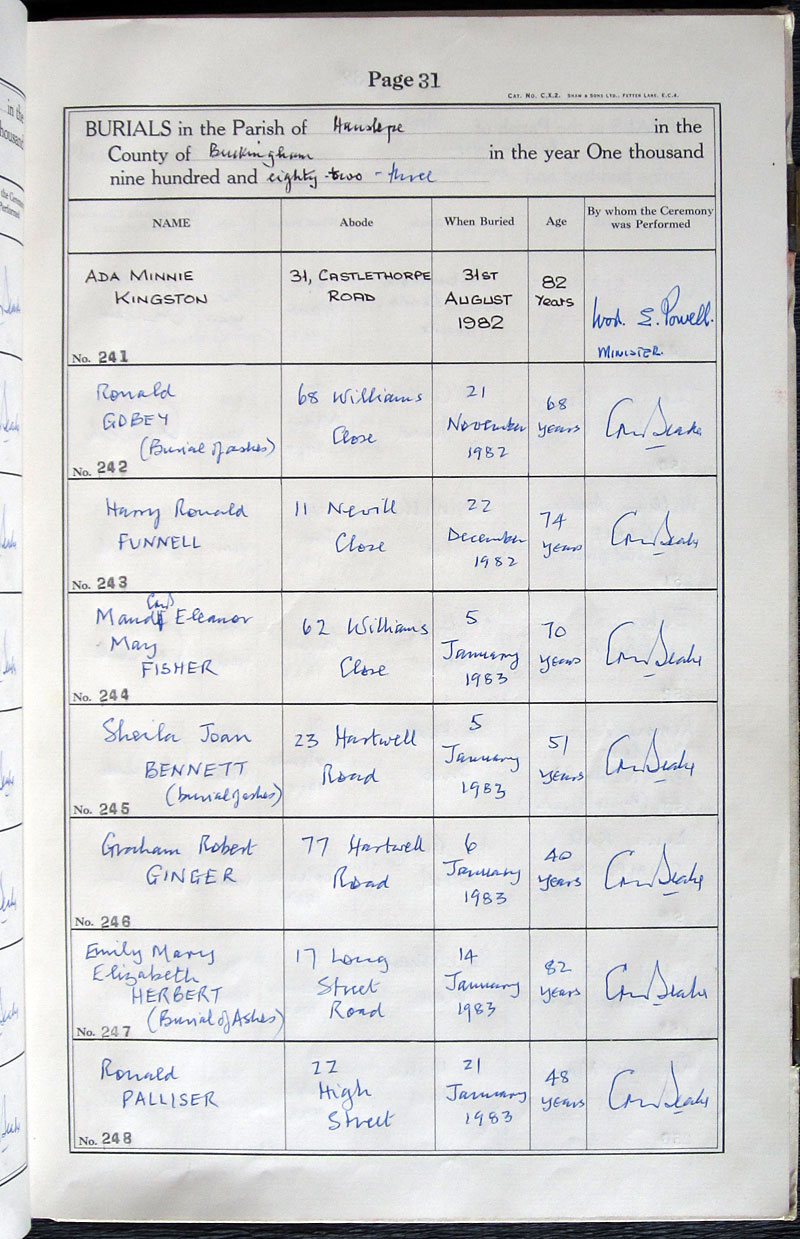 Page 31
CAT. No. C.X.2. SHAW & SONS LTD., FETTER LANE, E.C.4.
BURIALS in the Parish of Hanslope in the
County of Buckingham in the year One thousand
nine hundred and eighty-two - three
NAME Abode When Buried Age By whom the Ceremony was Performed
ADA MINNIE 31, CASTLETHORPE 31ST 82
KINGSTON ROAD AUGUST Years
1982 E. Powell.
No. 241 MINISTER.
Ronald 68 Williams 21 68
GOBEY Close November years
(Burial of ashes) 1982
No. 242
Harry Ronald 11 Nevill 22 74
FUNNELL Close December years
1982
No. 243
Eleanor 62 Williams 5 70
May Close January years
FISHER 1983
No. 244
Sheila Joan 23 Hartwell 5 51
BENNETT Road January years
(burial of ashes) 1983
No. 245
Graham Robert 77 Hartwell 6 40
GINGER Road January years
1983
No. 246
Emily Mary 17 Long 14 82
Elizabeth Street January years
HERBERT Road 1983
(Burial of Ashes)
No. 247
Ronald 22 21 48
PALLISER High January years
Street 1983
No. 248